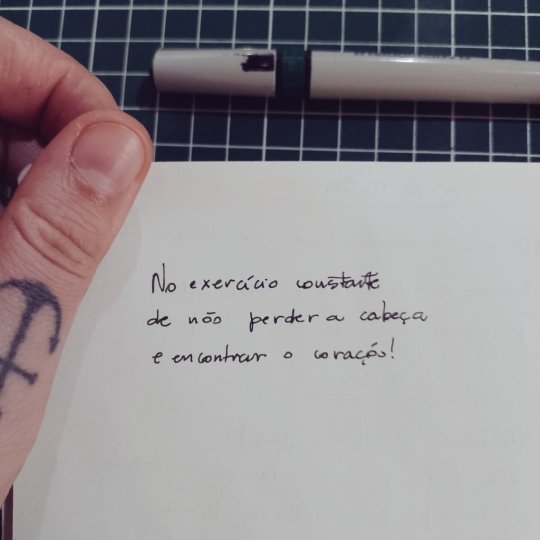 No exercício constante
de não perder a cabeça
e encontrar o coração!